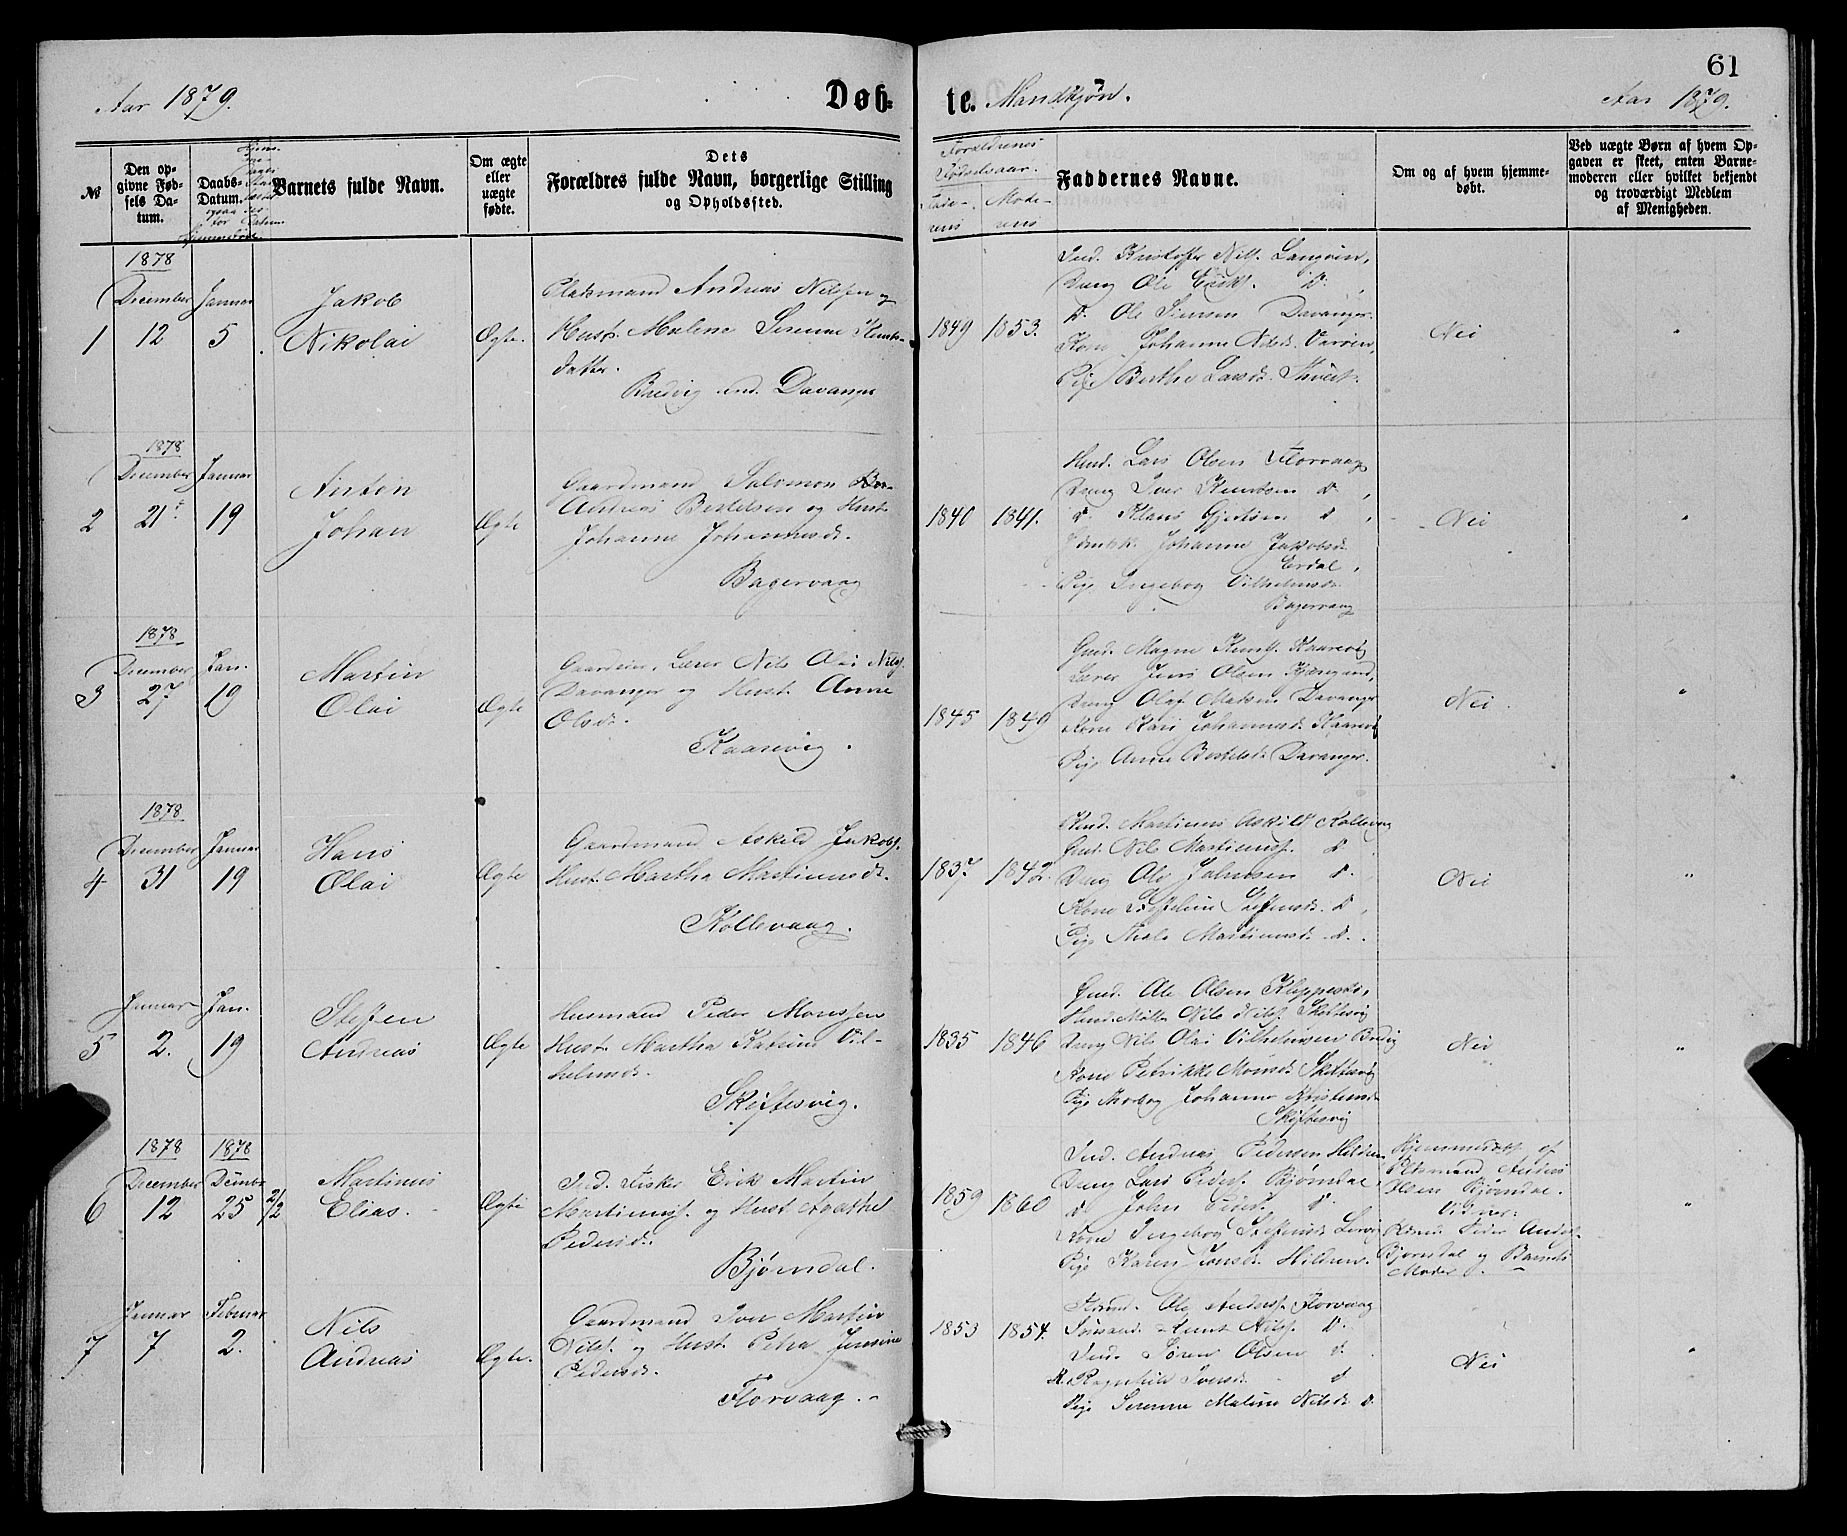 61
Aar 1879.
Døb=
te. Mandkjøn.
Aar 1879.
№
Den op-
givne Fød-
sels Da-
tum.
Daabs-
Datum.
Barnets fulde Navn.
Om ægte
eller
uægte
fødte.
Dets
Forældres fulde Navn, borgerlige Stilling
og Opholdssted.
Forældrenes
Fødselsaar.
Fade-
rens
Mode-
rens
Faddernes Navne.
Om og af hvem hjemme-
døbt.
Ved uægte Børn af hvem Op-
gaven er skeet, enten Barne-
moderen eller hvilket bekjendt
og troværdigt Medlem
af Menigheden.
1
1878
December
12
Januar
5
Jakob
Nikolai
Ægte.
Pladsmand Andreas Nilsen og
Hust. Malene Serine Knuts-
datter.
Bredvig und. Davanger
1849
1853.
Ind. Kristoffer Nils. Langøen,
Dreng Ole Erik. D.
D. Ole Simsen Davanger.
Kone Johanne Nilsd.
Pige Berthe Larsd.
Nei
"
2
1878
December
21
Januar
19
Anton
Johan
Ægte
Gaardmand Salomon
Andreas Bertelsen og Hust.
Johanne Johannesd.
Bagervaag
1840
1841.
Lars Olsen Florvaag
Dreng Iver Knutsen D.
D. Klaus Gjertsen D.
Johanne Jakobsd.
Erdal,
Pige Ingeborg Vilhelmsd.
Bagervaag
Nei
"
3
1878
December
27
Jan.
19
Martin
Olai
Ægte
Gaardeier, Lærer Nils Olai Nils.
Davanger og Hust. Anne
Olsd.
Kaarevig.
1845
1849
Gmd. Magne Knuts. Kaarevig
Lærer Jens Olsen
Dreng Olaf Madsen Davanger
Kone Kari Johannesd. Kaarevig
Pige Anne Bertelsd. Davanger.
Nei.
"
4
1878
December
31
Januar
19
Hans
Olai
Ægte
Gaardmand Askild Jakobs.
Hust. Martha Martinusd.
Kollevaag.
1837
1842.
Martinus Askilds. Kollevaag
Gmd. Nils Martinus. D.
Dreng Ole Johnsen D.
Kone Steffensd. D.
Pige Martinusd. D.
Nei
"
5
Januar
2.
Jan.
19
Steffen
Andreas
Ægte
Husmand Peder Monssen
Hust. Martha Katrine Vil-
helmsd.
Skiftesvig.
1835
1846
Gmd. Ole Olsen Kleppestø,
Nils Nils. Skiftesvig
Dreng Nils Olai Vilhelmsen Bredvig
Kone Petrikke Monsd. Skiftesvig
Pige Johanne Kristensd.
Skiftesvig
Nei
"
6
1878
December
12
1878
Decembr
25
2/2
Martinus
Elias.
Ægte
Ind. Fisker Erik Martin
Martinus. og Hust. Agathe
Pedersd.
Bjørndal.
1859
1860
Ind. Andreas Pedersen Hildren
Dreng Lars Peders. Bjørndal,
D. John Peders. D.
Kone Ingeborg Steffensd.
Pige Karen Jonsd. Hildren.
Hjemmedøbt af
Anders
Olsen Bjørndal.
Vidner:
Peder Anders.
Bjørndal og Barnets
Moder.
"
7
Januar
7
Februar
2.
Nils
Andreas
Ægte.
Gaardmand Iver Martin
Nils. og Hust. Petra Jensine
Pedersd.
Florvaag.
1853
1854.
Ole Anders. Florvaag
Knut Nils. D.
Ind. Søren Olsen D.
K. Ragnhild Iversd. D
Pige Serine Malene Nilsd. D.
Nei
"